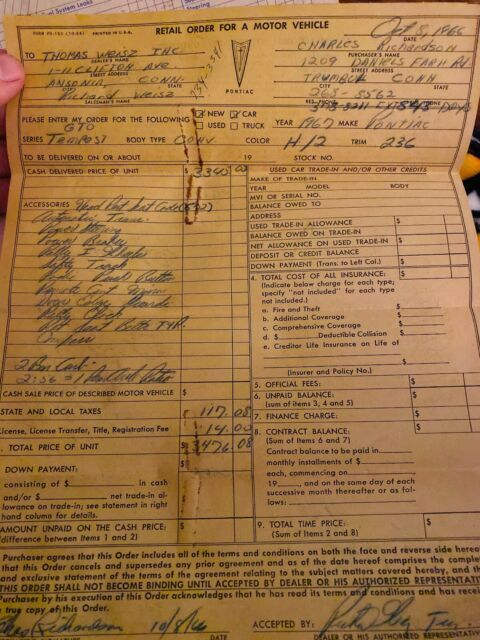 System Leaks
Steering
FORM PS-101 (10-64) PRINTED IN U.S.A.
RETAIL ORDER FOR A MOTOR VEHICLE
Oct 8, 1966
DATE
TO THOMAS WEISZ INC.
DEALER'S NAME
1-11 CLIFTON AVE.
STREET ADDRESS
ANSONIA, CONN.
CITY STATE
Richard WEISZ
SALESMAN'S NAME
PONTIAC
CHARLES Richardson
PURCHASER'S NAME
1209 DANIELS FARM Rd.
STREET ADDRESS
TRUMBULL CONN
CITY STATE
268-5562
PLEASE ENTER MY ORDER FOR THE FOLLOWING
NEW CAR
USED TRUCK
YEAR 1967 MAKE PONTIAC
GTO
SERIES TEMPEST BODY TYPE CONV COLOR H/2 TRIM 236
TO BE DELIVERED ON OR ABOUT 19 STOCK NO.
CASH DELIVERED PRICE OF UNIT $ 3345 00
ACCESSORIES
Automatic Trans.
Power Steering
Power Brakes
Rally I
Remote Cont Mirror
Rally Clock
2 Bar Cart
CASH SALE PRICE OF DESCRIBED MOTOR VEHICLE $
STATE AND LOCAL TAXES 117.08
License, License Transfer, Title, Registration Fee 14.00
TOTAL PRICE OF UNIT $ 3476.08
DOWN PAYMENT: $
consisting of $ in cash
and/or $ net trade-in al-
lowance on trade-in; see statement in right
hand column for details.
AMOUNT UNPAID ON THE CASH PRICE: $
(difference between Items 1 and 2)
USED CAR TRADE-IN AND/OR OTHER CREDITS
MAKE OF TRADE-IN
YEAR MODEL BODY
MVI OR SERIAL NO.
BALANCE OWED TO
ADDRESS
USED TRADE-IN ALLOWANCE $
BALANCE OWED ON TRADE-IN $
NET ALLOWANCE ON USED TRADE-IN $
DEPOSIT OR CREDIT BALANCE
DOWN PAYMENT (Trans. to Left Col.) $
4. TOTAL COST OF ALL INSURANCE: $
(Indicate below charge for each type;
specify "not included" for each type
not included.)
a. Fire and Theft $
b. Additional Coverage $
c. Comprehensive Coverage $
d. $ Deductible Collision $
e. Creditor Life Insurance on Life of
$
(Insurer and Policy No.)
5. OFFICIAL FEES: $
6. UNPAID BALANCE: $
(sum of items 3, 4 and 5)
7. FINANCE CHARGE: $
8. CONTRACT BALANCE: $
(Sum of Items 6 and 7)
Contract balance to be paid in
monthly installments of $
each, commencing on
19 , and on the same day of each
successive month thereafter or as fol-
lows:
9. TOTAL TIME PRICE: $
(Sum of Items 2 and 8)
Purchaser agrees that this Order includes all of the terms and conditions on both the face and reverse side hereo
that this Order cancels and supersedes any prior agreement and as of the date hereof comprises the comple
and exclusive statement of the terms of the agreement relating to the subject matters covered hereby, and the
THIS ORDER SHALL NOT BECOME BINDING UNTIL ACCEPTED BY DEALER OR HIS AUTHORIZED REPRESENTATIV
Purchaser by his execution of this Order acknowledges that he has read its terms and conditions and has receiv
a true copy of this Order.
Richardson 10/8/66
DATE
ACCEPTED BY:
DEALER OR HIS AUTHORIZED REPRESENTAT